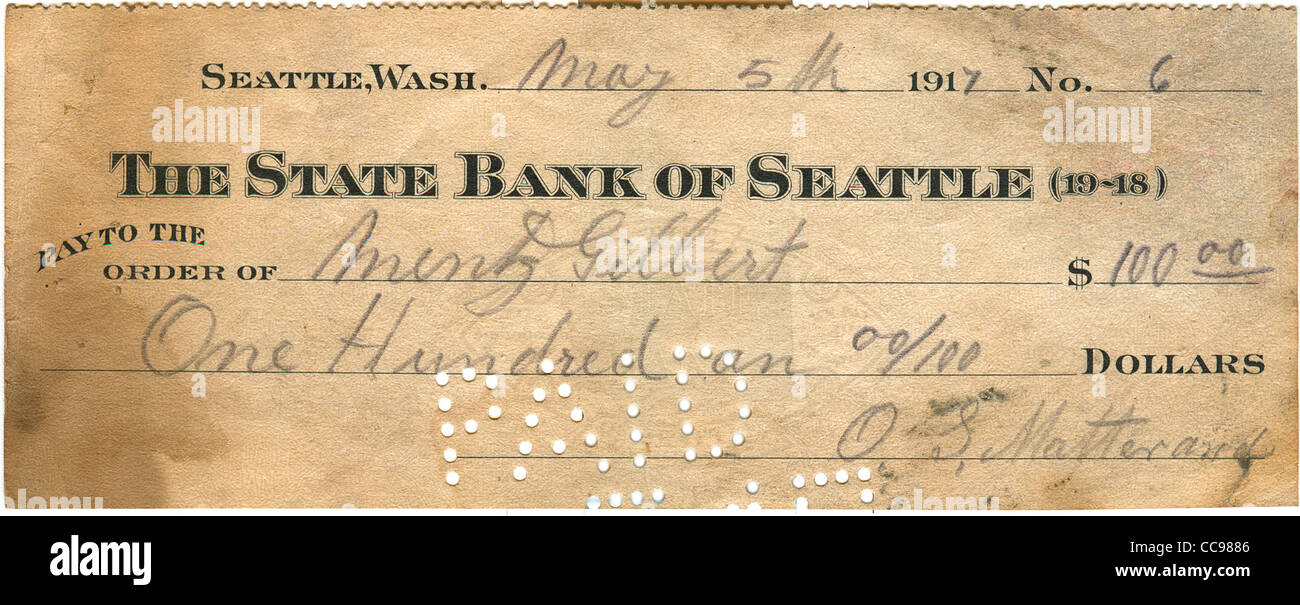 SEATTLE, WASH. May 5th 1917 No. 6
THE STATE BANK OF SEATTLE (19-18)
PAY TO THE
ORDER OF Mentz Gilbert $ 100 00
One Hundred an 00/100 DOLLARS
O. S. Matterand
PAID
alamy
Image ID: CC9886
www.alamy.com